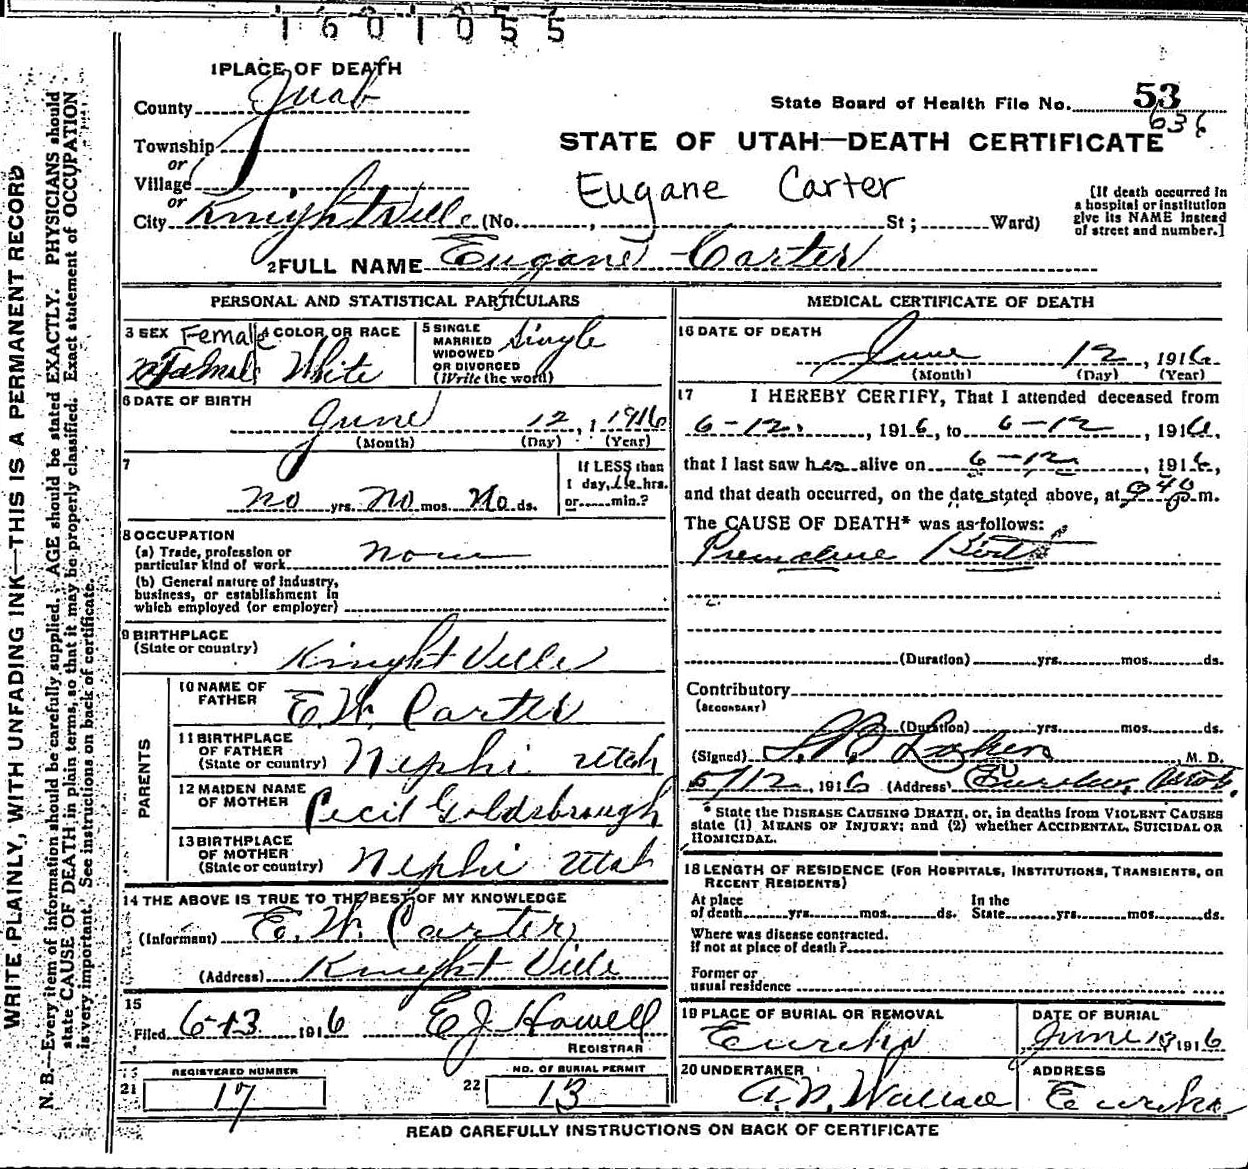 1601055
1 PLACE OF DEATH
County Juab
State Board of Health File No. 53
636
Township
or
Village
or
STATE OF UTAH—DEATH CERTIFICATE
Eugane Carter
City Knightville (No. , St; Ward)
[If death occurred in
a hospital or institution
give its NAME instead
of street and number.]
2 FULL NAME Eugane Carter
PERSONAL AND STATISTICAL PARTICULARS
3 SEX Female
4 COLOR OR RACE
White
5 SINGLE
MARRIED
WIDOWED
OR DIVORCED
(Write the word)
Single
6 DATE OF BIRTH
June 12, 1916
(Month) (Day) (Year)
7
no yrs. No mos. No ds.
If LESS than
1 day, hrs.
or min.?
8 OCCUPATION
(a) Trade, profession or
particular kind of work
(b) General nature of industry,
business, or establishment in
which employed (or employer)
9 BIRTHPLACE
(State or country) Knight Ville
PARENTS
10 NAME OF
FATHER E. W. Carter
11 BIRTHPLACE
OF FATHER
(State or country) Nephi Utah
12 MAIDEN NAME
OF MOTHER Cecil Goldsbrough
13 BIRTHPLACE
OF MOTHER
(State or country) Nephi Utah
14 THE ABOVE IS TRUE TO THE BEST OF MY KNOWLEDGE
(Informant) E. W. Carter
(Address) Knight Ville
15
Filed 6-13 1916 E J Howell
REGISTRAR
REGISTERED NUMBER
21 17
NO. OF BURIAL PERMIT
22 13
MEDICAL CERTIFICATE OF DEATH
16 DATE OF DEATH
June 12, 1916
(Month) (Day) (Year)
17 I HEREBY CERTIFY, That I attended deceased from
6-12, 1916, to 6-12, 1916,
that I last saw her alive on 6-12, 1916,
and that death occurred, on the date stated above, at m.
The CAUSE OF DEATH* was as follows:
Premature Birth
(Duration) yrs. mos. ds.
Contributory
(SECONDARY)
(Duration) yrs. mos. ds.
(Signed) M. D.
/12, 1916 (Address) Eureka, Utah.
* State the DISEASE CAUSING DEATH, or, in deaths from VIOLENT CAUSES
state (1) MEANS OF INJURY; and (2) whether ACCIDENTAL, SUICIDAL OR
HOMICIDAL.
18 LENGTH OF RESIDENCE (FOR HOSPITALS, INSTITUTIONS, TRANSIENTS, OR
RECENT RESIDENTS)
At place
of death yrs. mos. ds.
In the
State yrs. mos. ds.
Where was disease contracted.
if not at place of death?
Former or
usual residence
19 PLACE OF BURIAL OR REMOVAL
Eureka
DATE OF BURIAL
June 13, 1916
20 UNDERTAKER
A. N. Wallace
ADDRESS
Eureka
READ CAREFULLY INSTRUCTIONS ON BACK OF CERTIFICATE
WRITE PLAINLY, WITH UNFADING INK—THIS IS A PERMANENT RECORD
N. B.—Every item of information should be carefully supplied. AGE should be stated EXACTLY. PHYSICIANS should
state CAUSE OF DEATH in plain terms, so that it may be properly classified. Exact statement of OCCUPATION
is very important. See instructions on back of certificate.